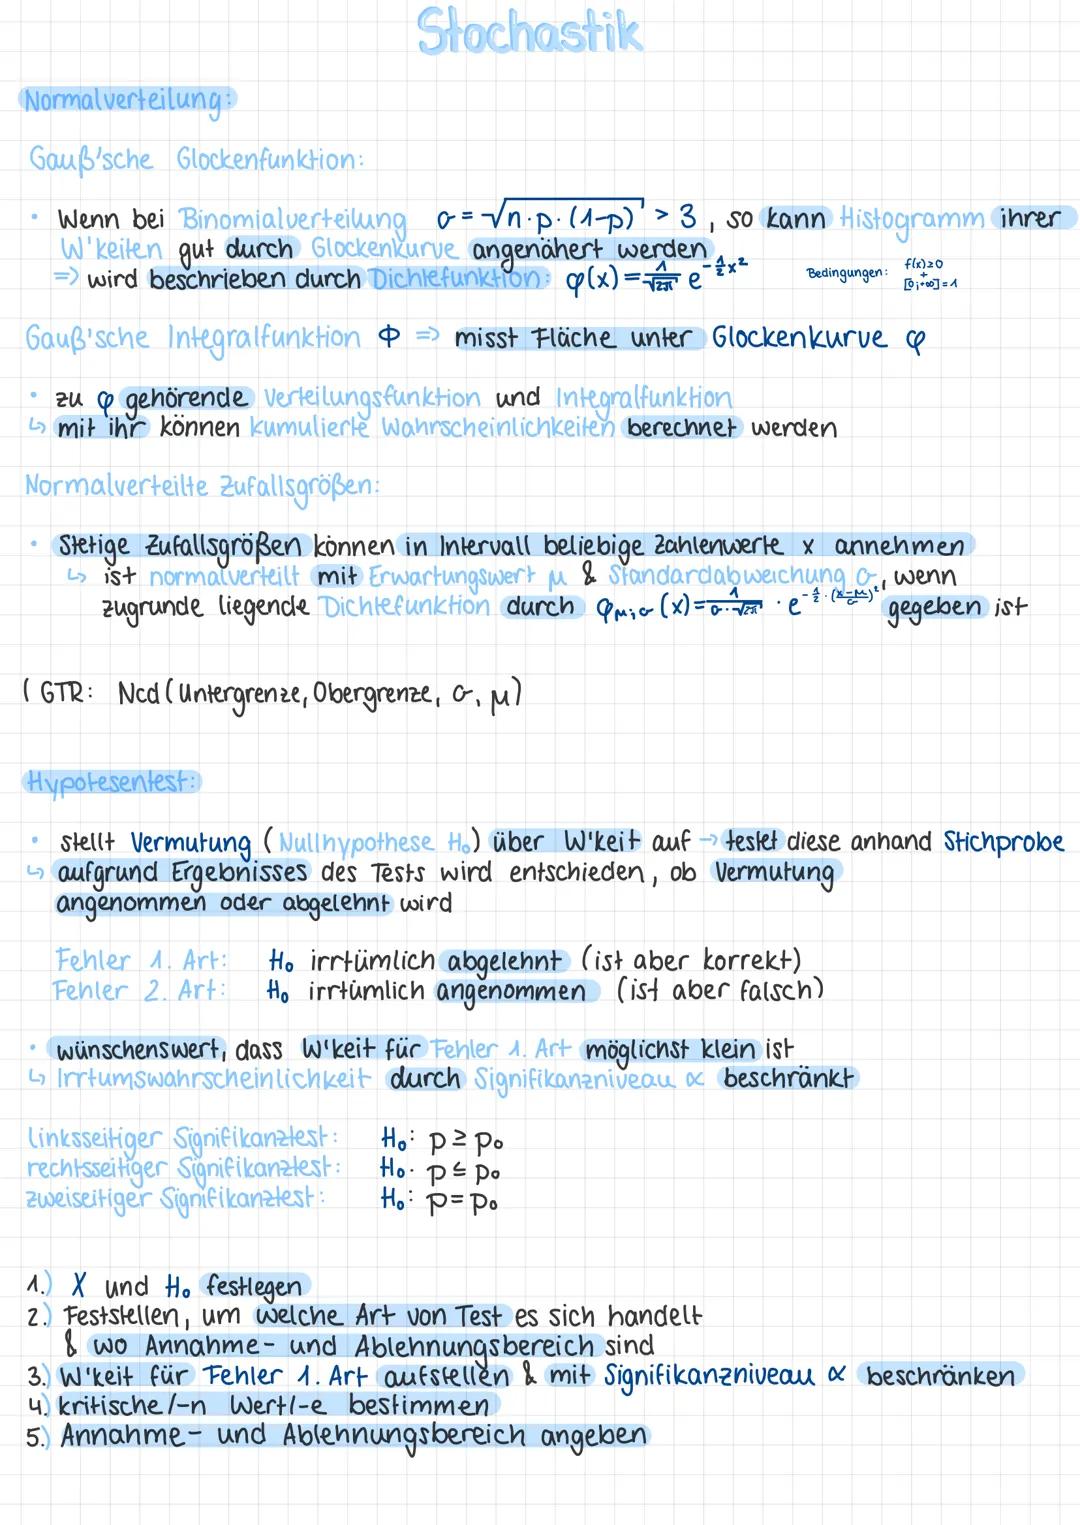 Stochastik
Normalverteilung:
Gauß'sche Glockenfunktion:
• Wenn bei Binomialverteilung σ = √n·p·(1-p) > 3, so kann Histogramm ihrer
W'keiten gut durch Glockenkurve angenähert werden
=> wird beschrieben durch Dichtefunktion: φ(x) = 1/√2π e^-½x² Bedingungen: f(x)≥0 + [0;+∞]=1
Gauß'sche Integralfunktion Φ => misst Fläche unter Glockenkurve φ
• zu φ gehörende Verteilungsfunktion und Integralfunktion
↳ mit ihr können kumulierte Wahrscheinlichkeiten berechnet werden
Normalverteilte Zufallsgrößen:
• Stetige Zufallsgrößen können in Intervall beliebige Zahlenwerte x annehmen
↳ ist normalverteilt mit Erwartungswert μ & Standardabweichung σ, wenn
zugrunde liegende Dichtefunktion durch φμ;σ (x) = 1/σ·√2π · e^-½·(x-μ/σ)² gegeben ist
( GTR: Ncd (Untergrenze, Obergrenze, σ, μ)
Hypotesentest:
• stellt Vermutung (Nullhypothese H₀) über W'keit auf → testet diese anhand Stichprobe
↳ aufgrund Ergebnisses des Tests wird entschieden, ob Vermutung
angenommen oder abgelehnt wird
Fehler 1. Art: H₀ irrtümlich abgelehnt (ist aber korrekt)
Fehler 2. Art: H₀ irrtümlich angenommen (ist aber falsch)
• wünschenswert, dass W'keit für Fehler 1. Art möglichst klein ist
↳ Irrtumswahrscheinlichkeit durch Signifikanzniveau α beschränkt
linksseitiger Signifikanztest: H₀: p ≥ p₀
rechtsseitiger Signifikanztest: H₀: p ≤ p₀
zweiseitiger Signifikanztest: H₀: p = p₀
1.) X und H₀ festlegen
2.) Feststellen, um welche Art von Test es sich handelt
& wo Annahme- und Ablehnungsbereich sind
3.) W'keit für Fehler 1. Art aufstellen & mit Signifikanzniveau α beschränken
4.) kritische/-n Wert/-e bestimmen
5.) Annahme- und Ablehnungsbereich angeben